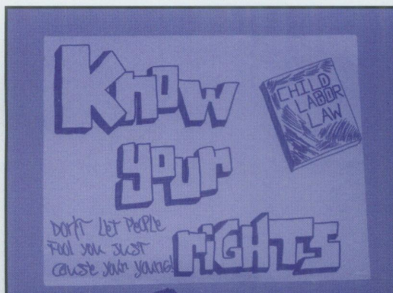 Know
your
rights
CHILD
LABOR
LAW
DON'T LET PEOPLE
FOOL YOU JUST
CAUSE YOUR YOUNG!